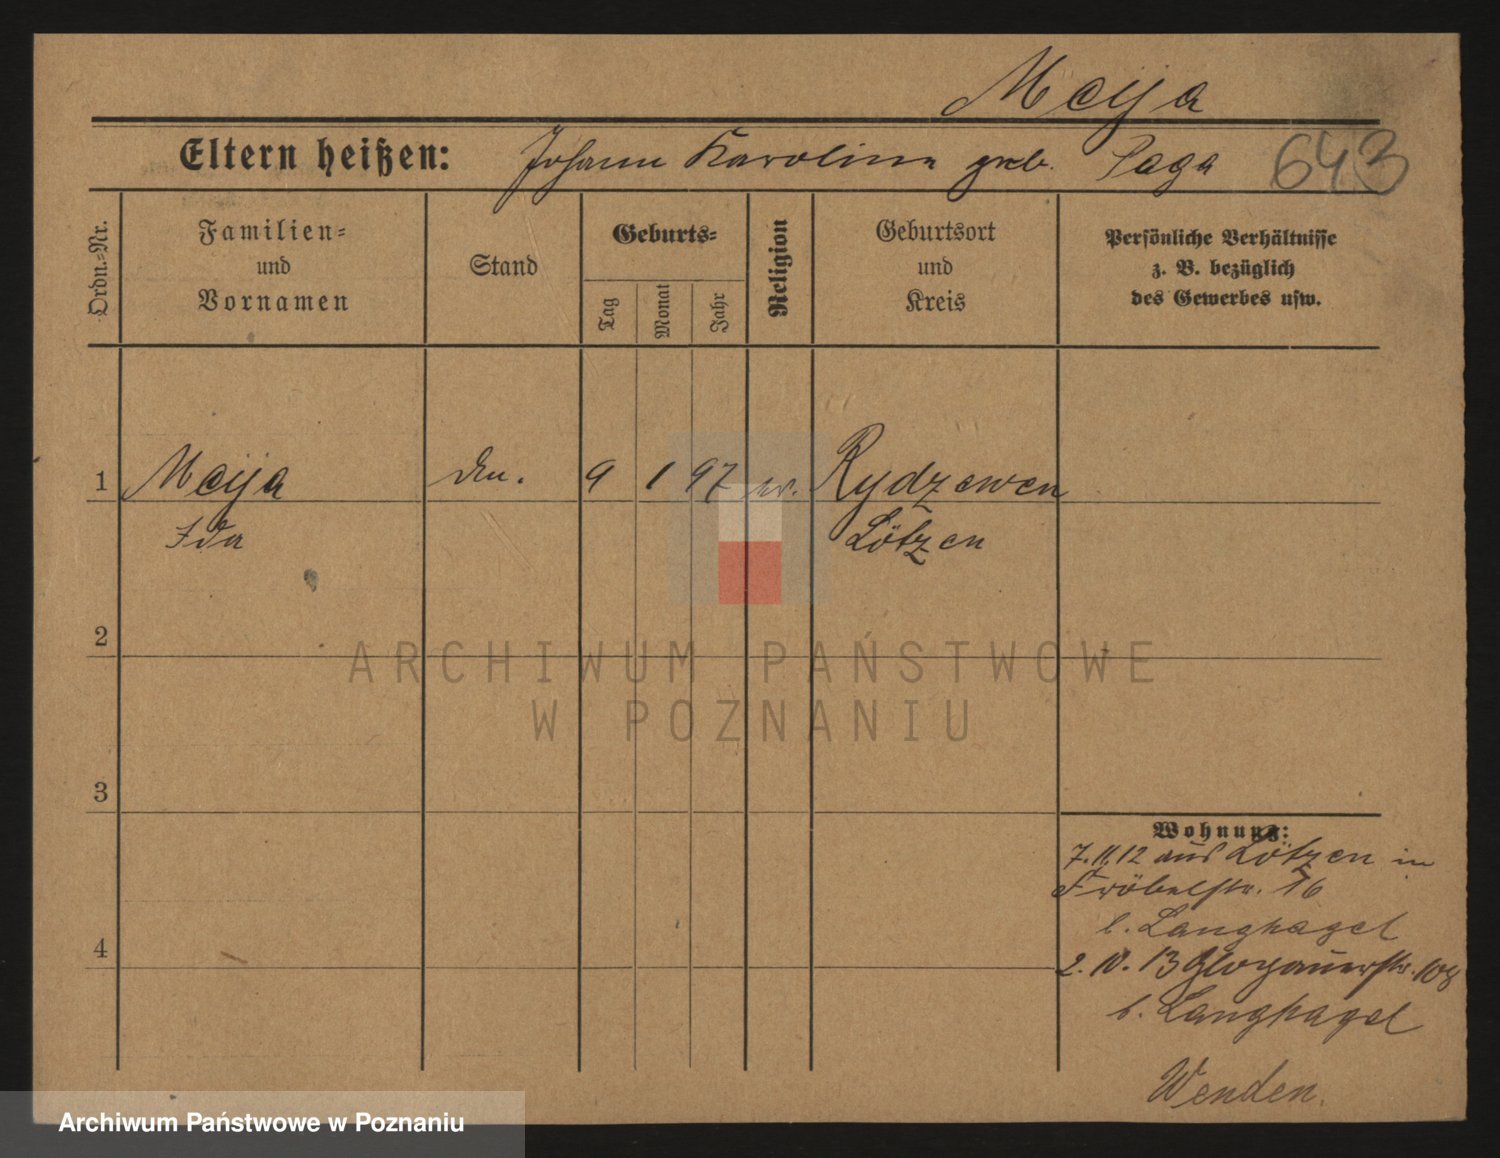 Meija
Eltern heißen: Johann Karoline geb. Saga 643
Ordn.-Nr.
Familien-
und
Vornamen
Stand
Geburts-
Tag
Monat
Jahr
Religion
Geburtsort
und
Kreis
Persönliche Verhältnisse
z. B. bezüglich
des Gewerbes usw.
1 Meija 9 1 97 ev. Rydzewen
Ida Lötzen
2
ARCHIWUM PAŃSTWOWE
W POZNANIU
3
Wohnung:
7. 11. 12 aus Lötzen in
Fröbelstr. 16
b. Langhagel
4
2. 10. 13 Glogauerstr. 108
b. Langhagel
Wenden.
Archiwum Państwowe w Poznaniu